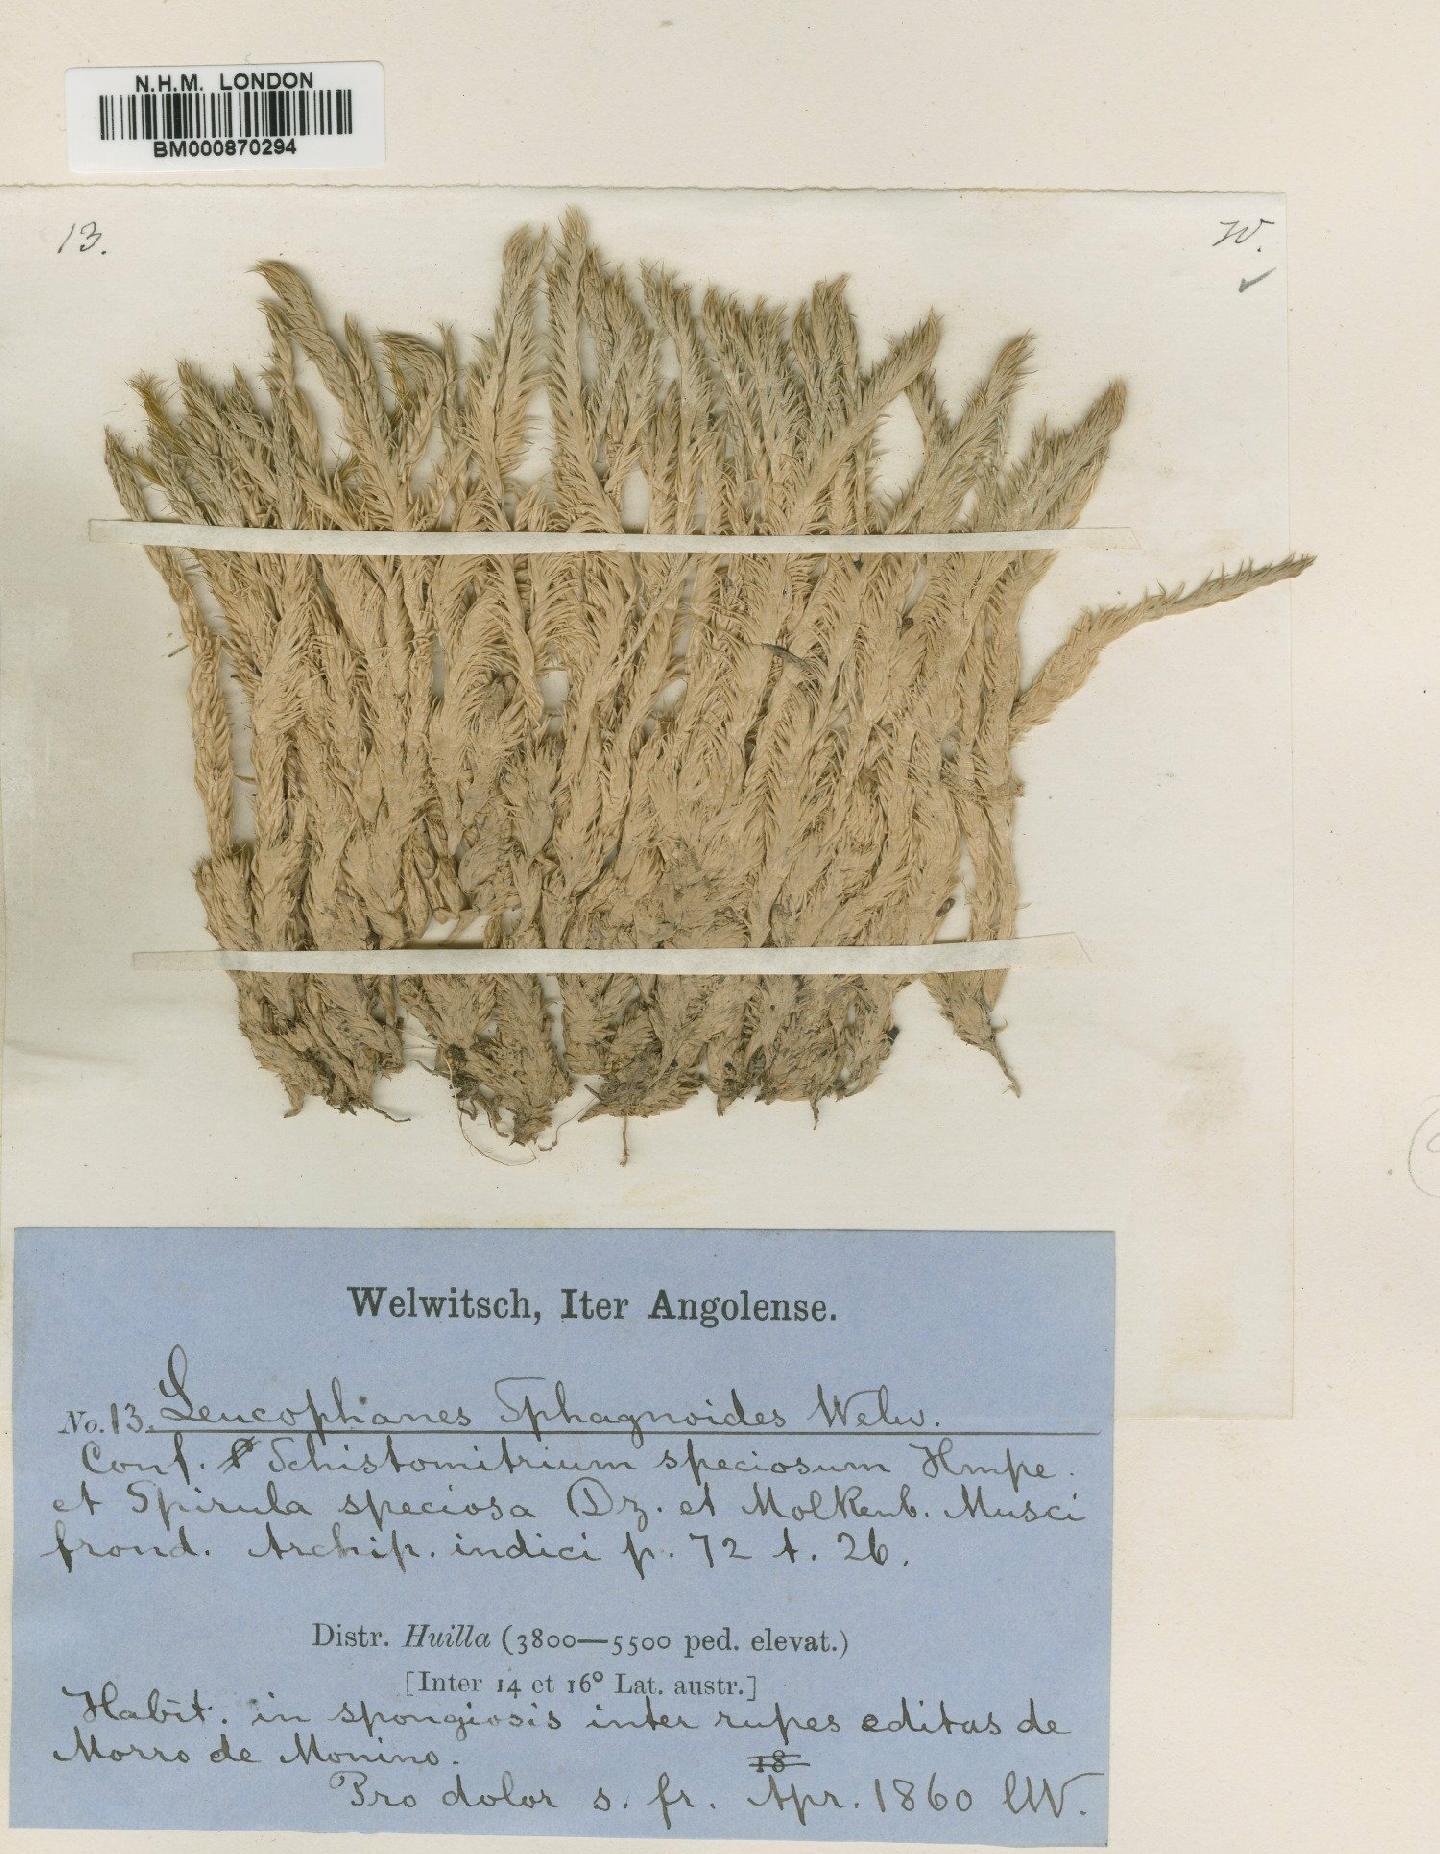 N.H.M. LONDON
BM000870294
13.
W.
Welwitsch, Iter Angolense.
No. 13. Leucophanes Sphagnoides Welw.
Conf. Schistomitrium speciosum Hmpe.
et Spirula speciosa Dz. et Molkenb. Musci
frond. Archip. indici p. 72 t. 26.
Distr. Huilla (3800—5500 ped. elevat.)
[Inter 14 et 16° Lat. austr.]
Habit. in spongiosis inter rupes editas de
Morro de Monino.
18
Pro dolor s. fr. Apr. 1860